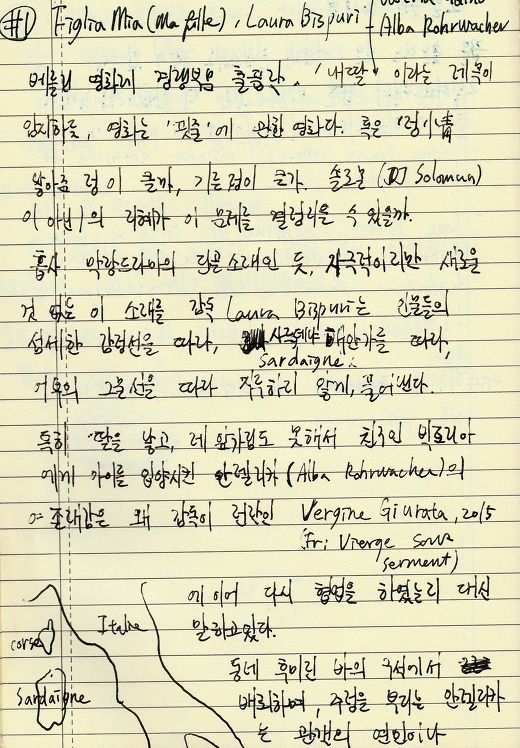 #1 Figlia Mia (Ma fille), Laura Bispuri
Alba Rohrwacher
베를린 영화제 경쟁부문 출품작. '내 딸' 이라는 제목이
암시하듯, 영화는 '핏줄'에 관한 영화다. 혹은
낳아준 정이 클까, 기른 정이 큰가. 솔로몬 (Solomon)
이 아닌)의 지혜가 이 문제를 결정지을 수 있을까.
흡사 막장드라마의 단골소재인 듯, 자극적이지만 새로울
것 없는 이 소재를 감독 Laura Bispuri는 인물들의
섬세한 감정선을 따라, 사르데냐 해안가를 따라,
Sardaigne
그물선을 따라 지루하지 않게, 풀어낸다.
특히 딸을 낳고, 제 앞가림도 못해서 친구인 빅토리아
에게 아이를 입양시킨 안젤리카 (Alba Rohrwacher)의
존재감은 왜 감독이 전작인 Vergine Giurata, 2015
(Fr: Vierge sous
serment)
에 이어 다시 협업을 하였는지 대신
말하고있다.
corse
Italie
Sardaigne
동네 후미진 바의 구석에서
배회하며, 주정을 부리는 안젤리카
는 관객의 연민이나